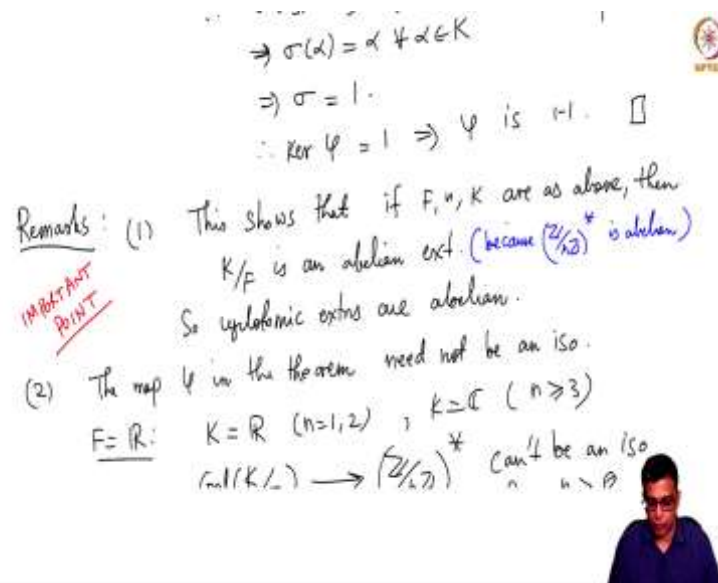 ⇒ σ(α) = α ∀ α ∈ K
⇒ σ = 1.
∴ Ker φ = 1 ⇒ φ is 1-1. □
Remarks : (1) This shows that if F, n, K are as above, then
K/F is an abelian ext. (because (Z/nZ)* is abelian)
IMPORTANT POINT
So cyclotomic extns are abelian.
(2) The map φ in the theorem need not be an iso.
F = ℝ: K = ℝ (n=1,2) , K = ℂ (n ≥ 3)
Gal(K/F) → (Z/nZ)* can't be an iso
NPTEL